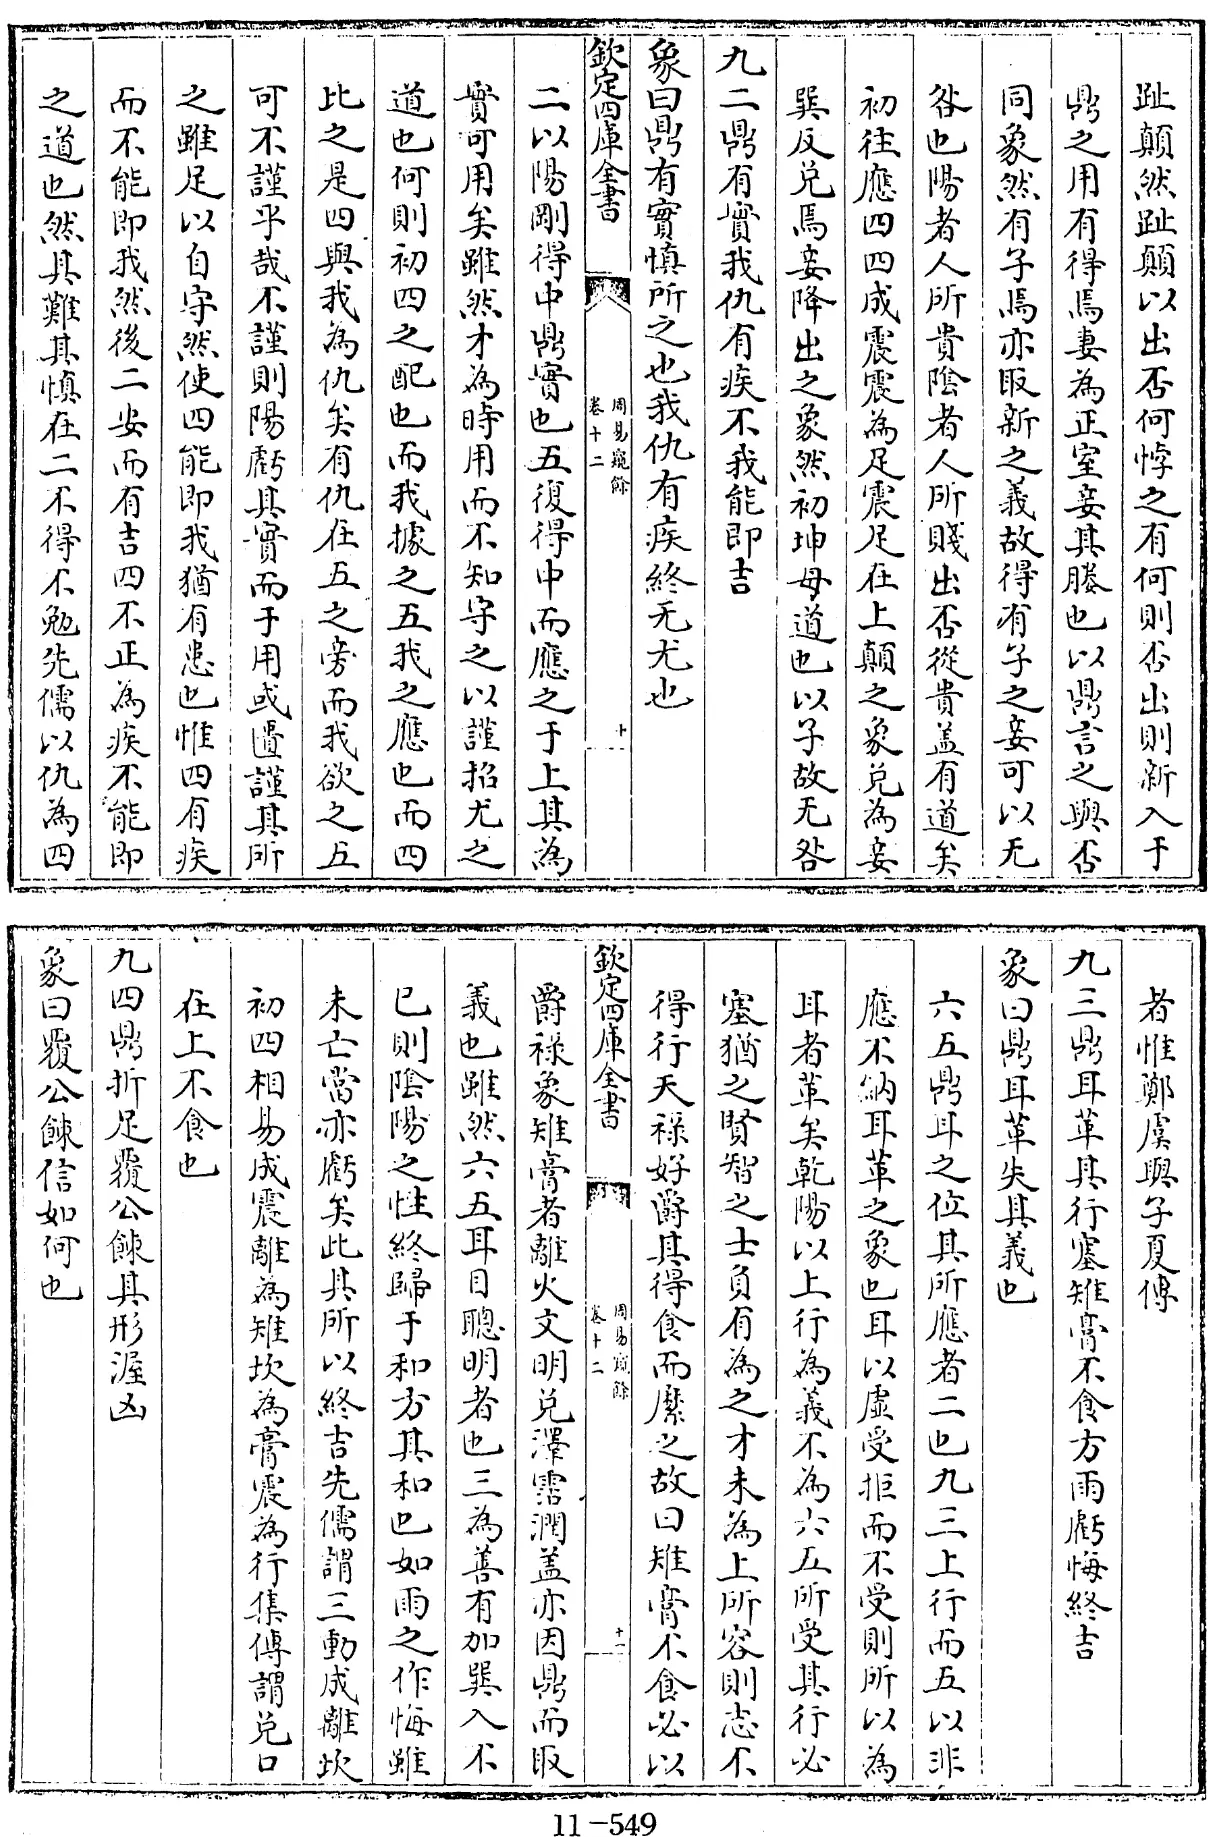 趾顛然趾顛以出否何悖之有何則否出則新入于
鼎之用有得焉妻為正室妾其媵也以鼎言之與否
同象然有子焉亦取新之義故得有子之妾可以无
咎也陽者人所貴陰者人所賤出否從貴蓋有道矣
初往應四四成震震為足震足在上顛之象兌為妾
巽反兌焉妾降出之象然初坤母道也以子故无咎
九二鼎有實我仇有疾不我能即吉
象曰鼎有實慎所之也我仇有疾終无尤也
欽定四庫全書
周易窺餘
卷十二
十
二以陽剛得中鼎實也五復得中而應之于上其為
實可用矣雖然才為時用而不知守之以謹招尤之
道也何則初四之配也而我據之五我之應也而四
比之是四與我為仇矣有仇在五之旁而我欲之五
可不謹乎哉不謹則陽虧其實而于用或匱謹其所
之雖足以自守然使四能即我猶有患也惟四有疾
而不能即我然後二安而有吉四不正為疾不能即
之道也然其難其慎在二不得不勉先儒以仇為四
者惟鄭虞與子夏傳
九三鼎耳革其行塞雉膏不食方雨虧悔終吉
象曰鼎耳革失其義也
六五鼎耳之位其所應者二也九三上行而五以非
應不納耳革之象也耳以虛受拒而不受則所以為
耳者革矣乾陽以上行為義不為六五所受其行必
塞猶之賢智之士負有為之才未為上所容則志不
得行天祿好爵其得食而縻之故曰雉膏不食必以
欽定四庫全書
周易窺餘
卷十二
十一
爵祿象雉膏者離火文明兌澤霑潤蓋亦因鼎而取
義也雖然六五耳目聰明者也三為善有加巽入不
已則陰陽之性終歸于和方其和也如雨之作悔雖
未亡當亦虧矣此其所以終吉先儒謂三動成離坎
初四相易成震離為雉坎為膏震為行集傳謂兌口
在上不食也
九四鼎折足覆公餗其形渥凶
象曰覆公餗信如何也
11-549